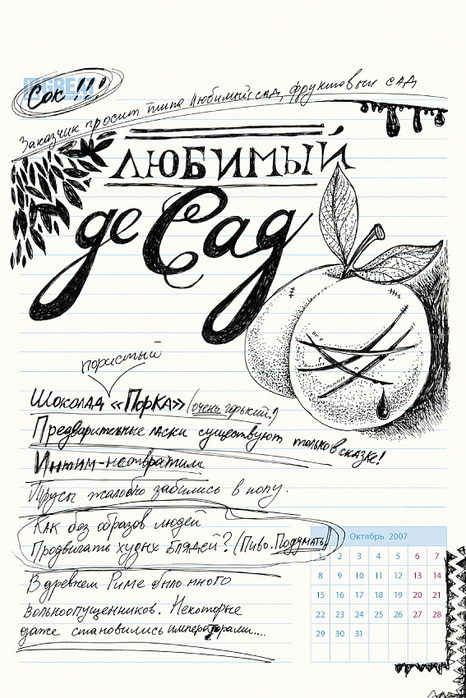 Сок !!!
Заказчик просит типа Любимый сад, фруктовый сад
ЛЮБИМЫЙ
де Сад
пористый
Шоколад «ПОРКА» (очень горький!)
Предварительные ласки существуют только в сказке!
Интим-неотвратим
Трусы жалобно забились в попу.
Как без образов людей
Продвигать худых блядей? (Пиво. Подумать)
В древнем Риме было много
вольноопущенников. Некоторые
даже становились императорами....
Октябрь 2007
1 2 3 4 5 6 7
8 9 10 11 12 13 14
15 16 17 18 19 20 21
22 23 24 25 26 27 28
29 30 31